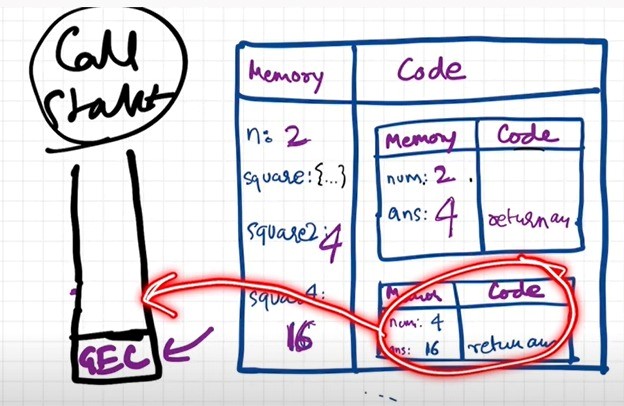 Call
Stake
GEC
Memory
Code
n: 2
square:{...}
square2: 4
square4:
16
Memory
Code
num: 2
ans: 4
return an
Code
num: 4
ans: 16
return ans
...